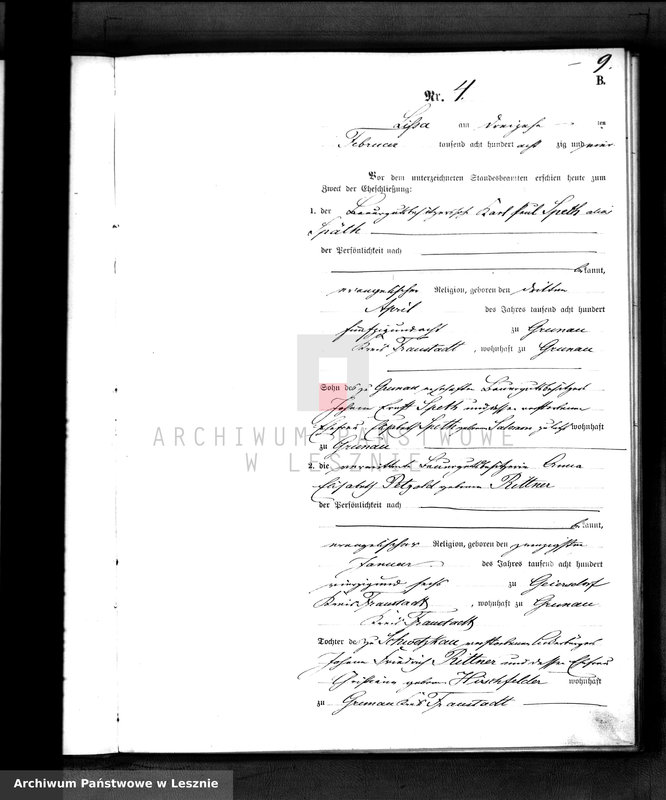 9.
B.
Nr. 4.
Lissa am dreizehn ten
Februar tausend acht hundert acht zig und
Vor dem unterzeichneten Standesbeamten erschien heute zum
Zweck der Eheschließung:
1. der Karl Paul Speth alias
Späth
der Persönlichkeit nach
kannt,
evangelischer Religion, geboren den dritten
April des Jahres tausend acht hundert
fünfzig und acht zu Grunau
Kreis Fraustadt, wohnhaft zu Grunau
Sohn des zu Grunau
Johann Ernst Speth und dessen verstorbenen
Ehefrau Speth geborene wohnhaft
zu Grunau
ARCHIWUM PAŃSTWOWE
W LESZNIE
2. die verwittwete Anna
Elisabeth Petzold geborene Rittner
der Persönlichkeit nach
kannt,
evangelischer Religion, geboren den zwanzigsten
Januar des Jahres tausend acht hundert
vierzig und sechs zu Geiersdorf
Kreis Fraustadt, wohnhaft zu Grunau
Kreis Fraustadt
Tochter des zu verstorbenen
Johann Friedrich Rittner und dessen Ehefrau
Christiane geborene Hirschfelder wohnhaft
zu Grunau Kreis Fraustadt
Archiwum Państwowe w Lesznie